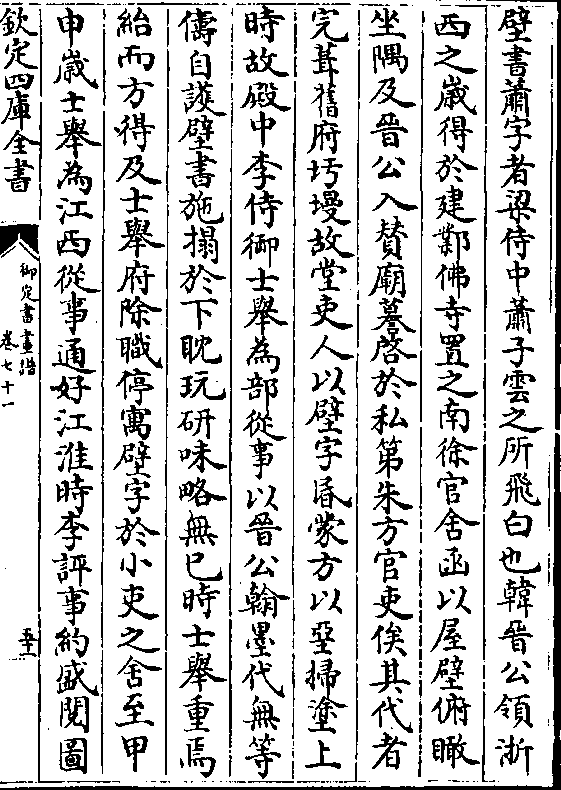 壁書蕭字者梁侍中蕭子雲之所飛白也韓晉公領浙
西之歲得於建鄴佛寺置之南徐官舍函以屋壁俯瞰
坐隅及晉公入贊廟謩啓於私第朱方官吏俟其代者
完葺舊府圬墁故堂吏人以壁字昬蒙方以堊掃塗上
時故殿中李侍御士舉為部從事以晉公翰墨代無等
儔自護壁書施搨於下耽玩研味略無已時士舉重焉
紿而方得及士舉府除職停寓壁字於小吏之舍至甲
申歲士舉為江西從事通好江淮時李評事約盛閱圖
欽定四庫全書
御定書畫譜
卷七十一